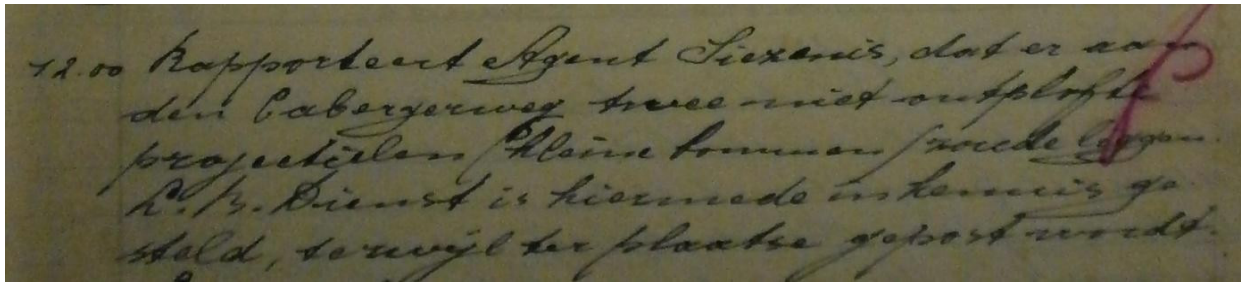 12.00 Rapporteert Agent Siezenis, dat er aan
den Cabergerweg twee niet ontplofte
projectielen (kleine bommen) zoude liggen.
L.B. Dienst is hiermede in kennis ge
steld, terwijl ter plaatse gepost wordt.